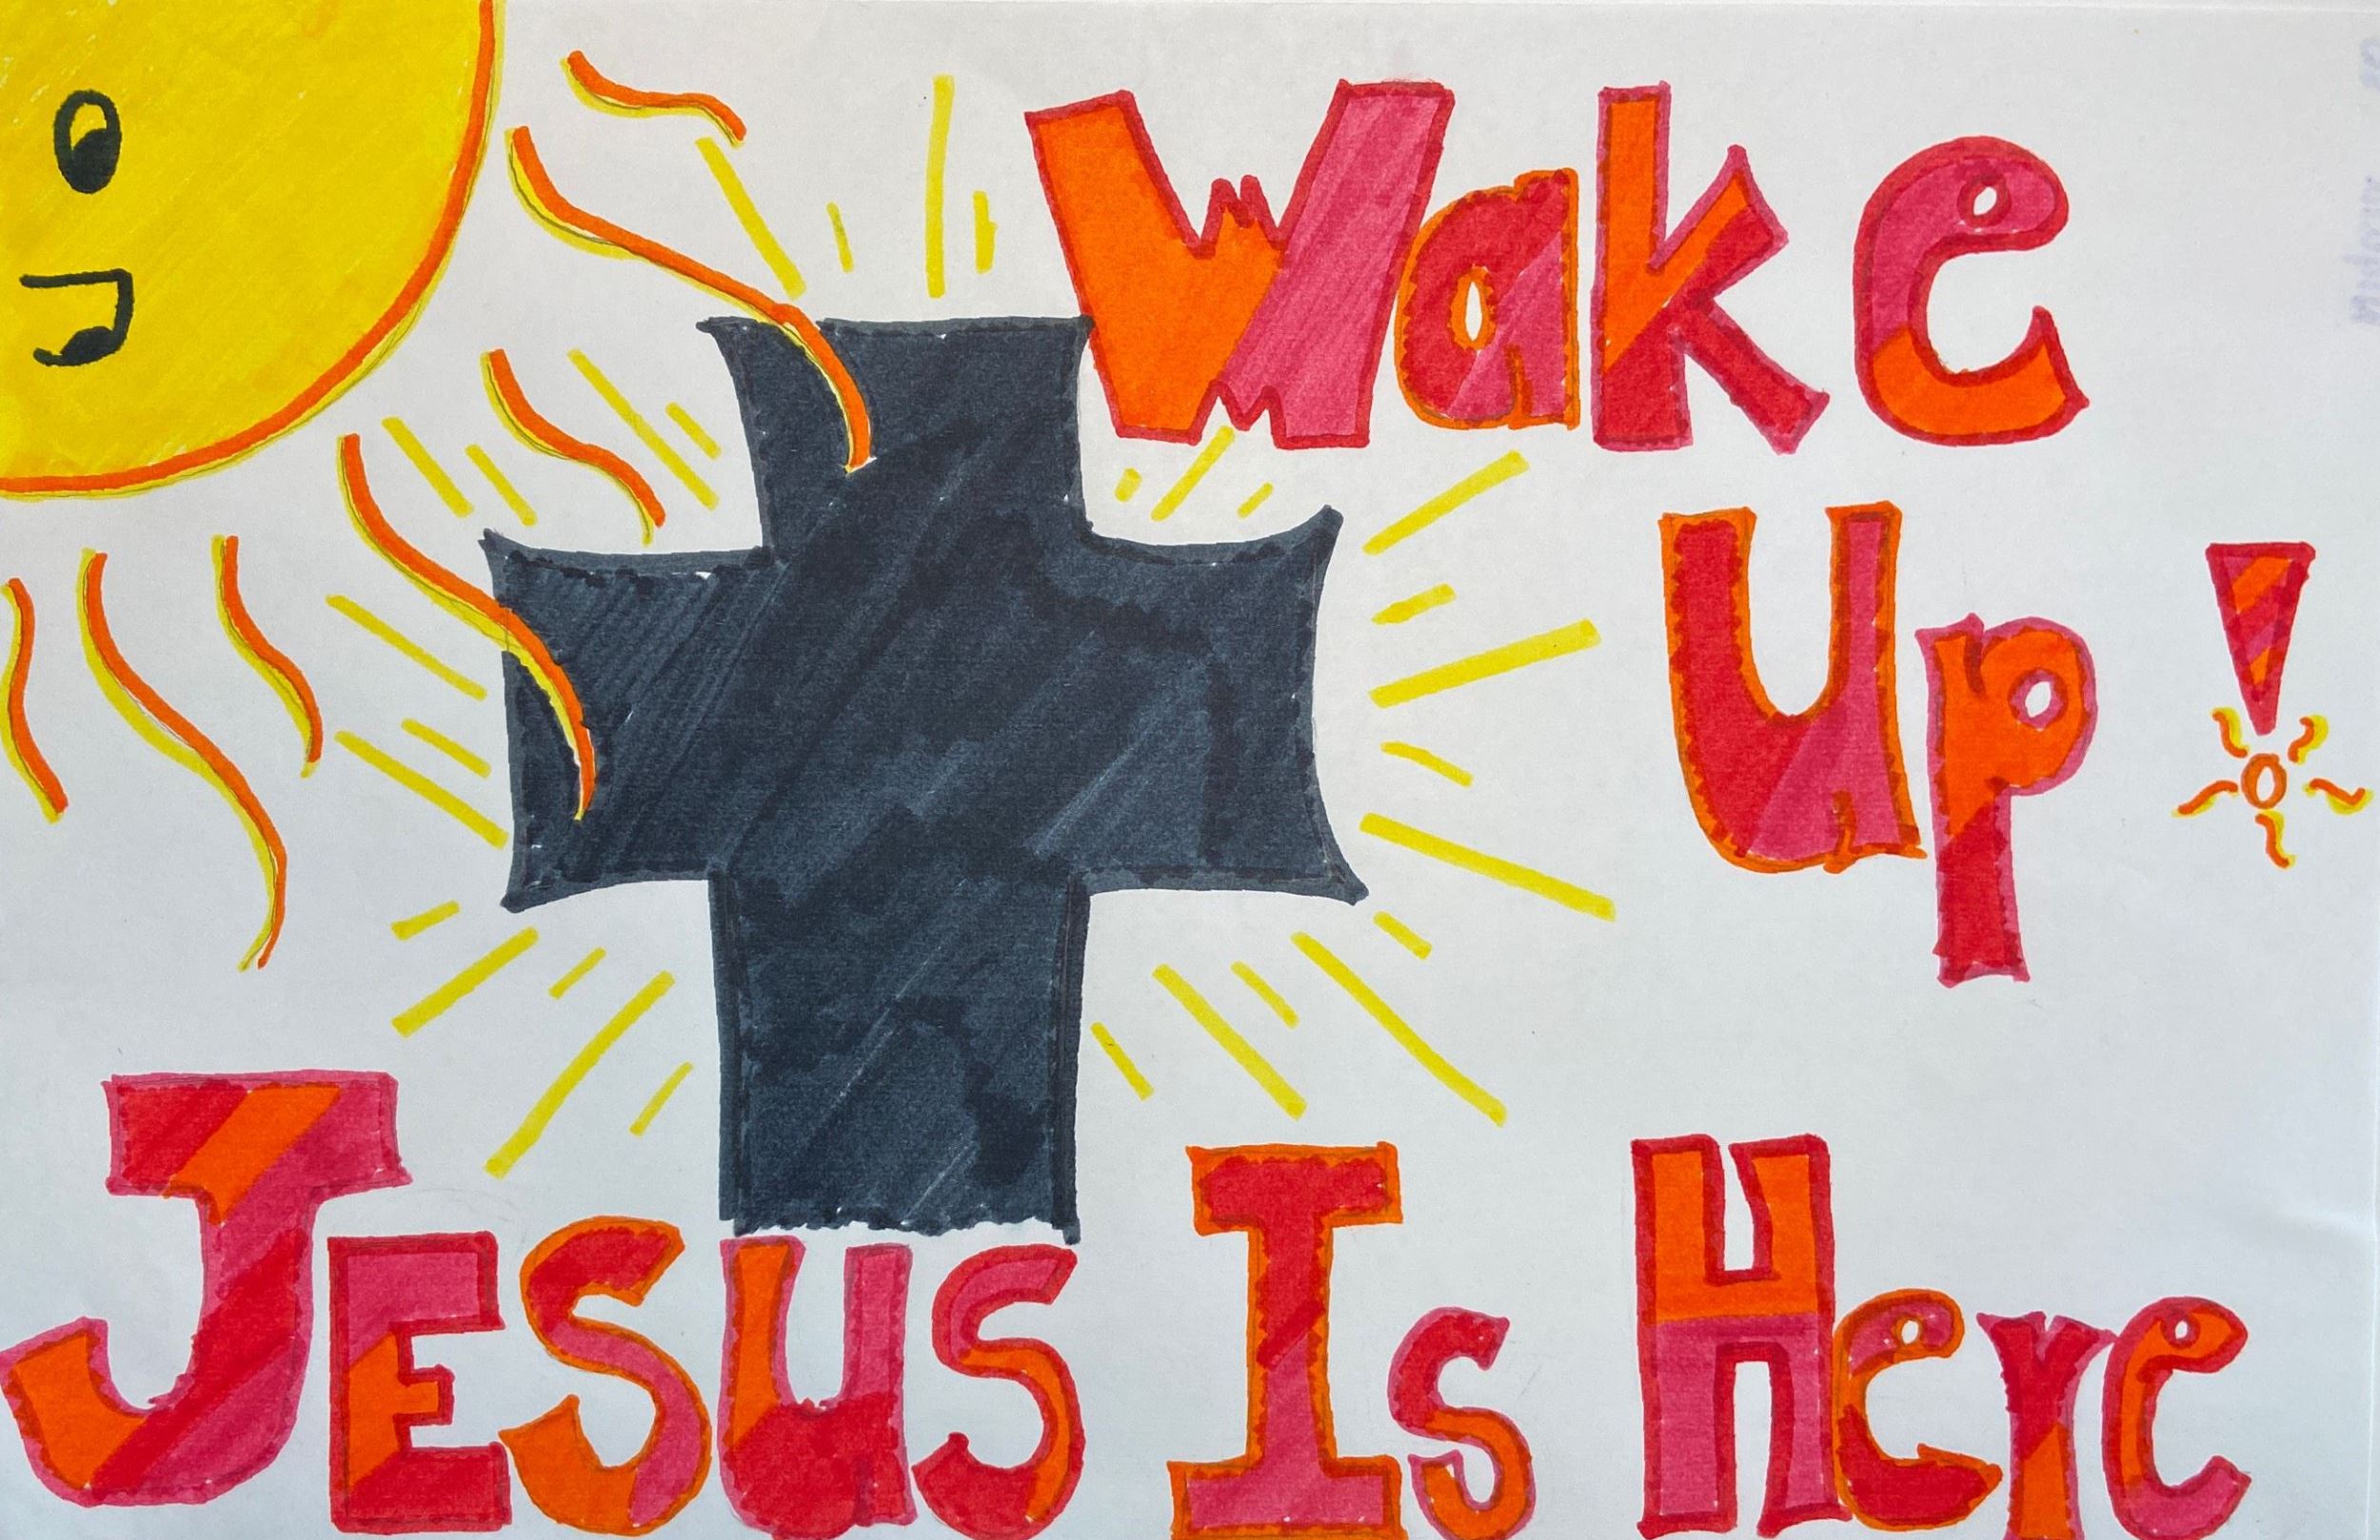 Wake
Up!
JESUS Is Here